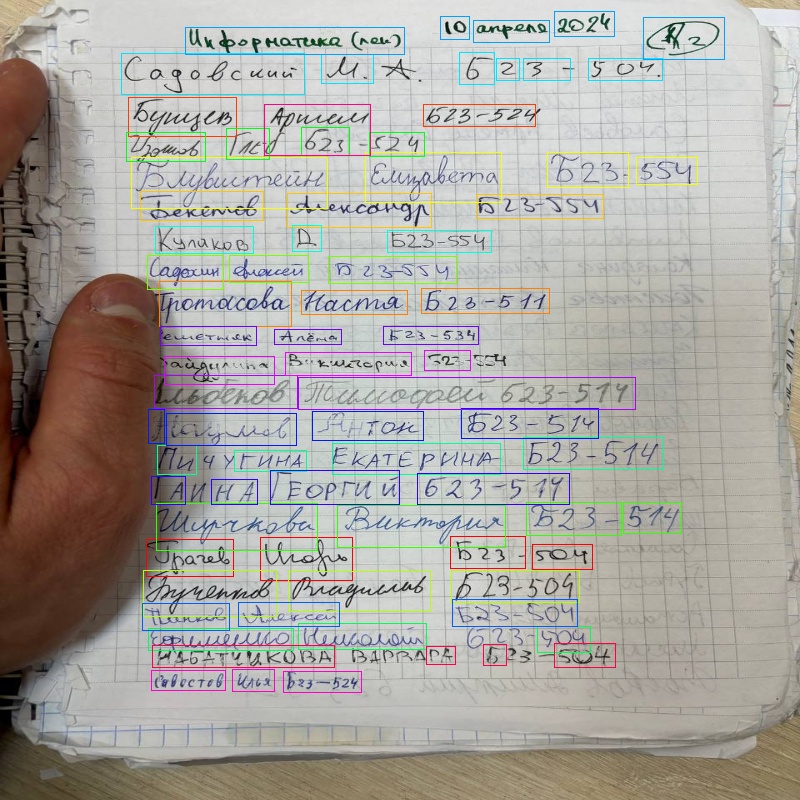 Информатика (лек) 10 апреля 2024 №2
Садовский М. А. Б23-504.
Бунцев Артём Б23-524
Глеб Б23-524
Блувштейн Елизавета Б23-554
Бекетов Александр Б23-554
Кулаков Д Б23-554
Садохин Алексей Б23-554
Протасова Настя Б23-511
Решетняк Алёна Б23-534
Виктория Б23-554
Тимофей Б23-514
Наумов Антон Б23-514
ПИЧУГИНА ЕКАТЕРИНА Б23-514
ГАИНА ГЕОРГИЙ Б23-514
Шурчкова Виктория Б23-514
Грачев Игорь Б23-504
Бученков Владислав Б23-504
Алексей Б23-504
Ефименко Николай Б23-504
НАБАТЧИКОВА ВАРВАРА Б23-504
Савостов Илья Б23-524